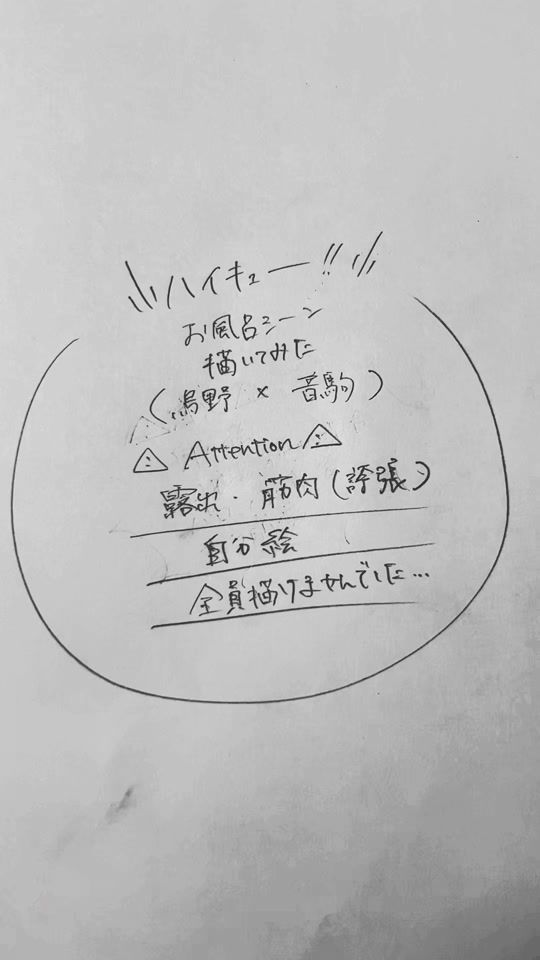 ハイキュー!!
お風呂シーン
描いてみた
(烏野 × 音駒)
⚠ Attention ⚠
露出・筋肉(誇張)
自分絵
全員描けませんでした...